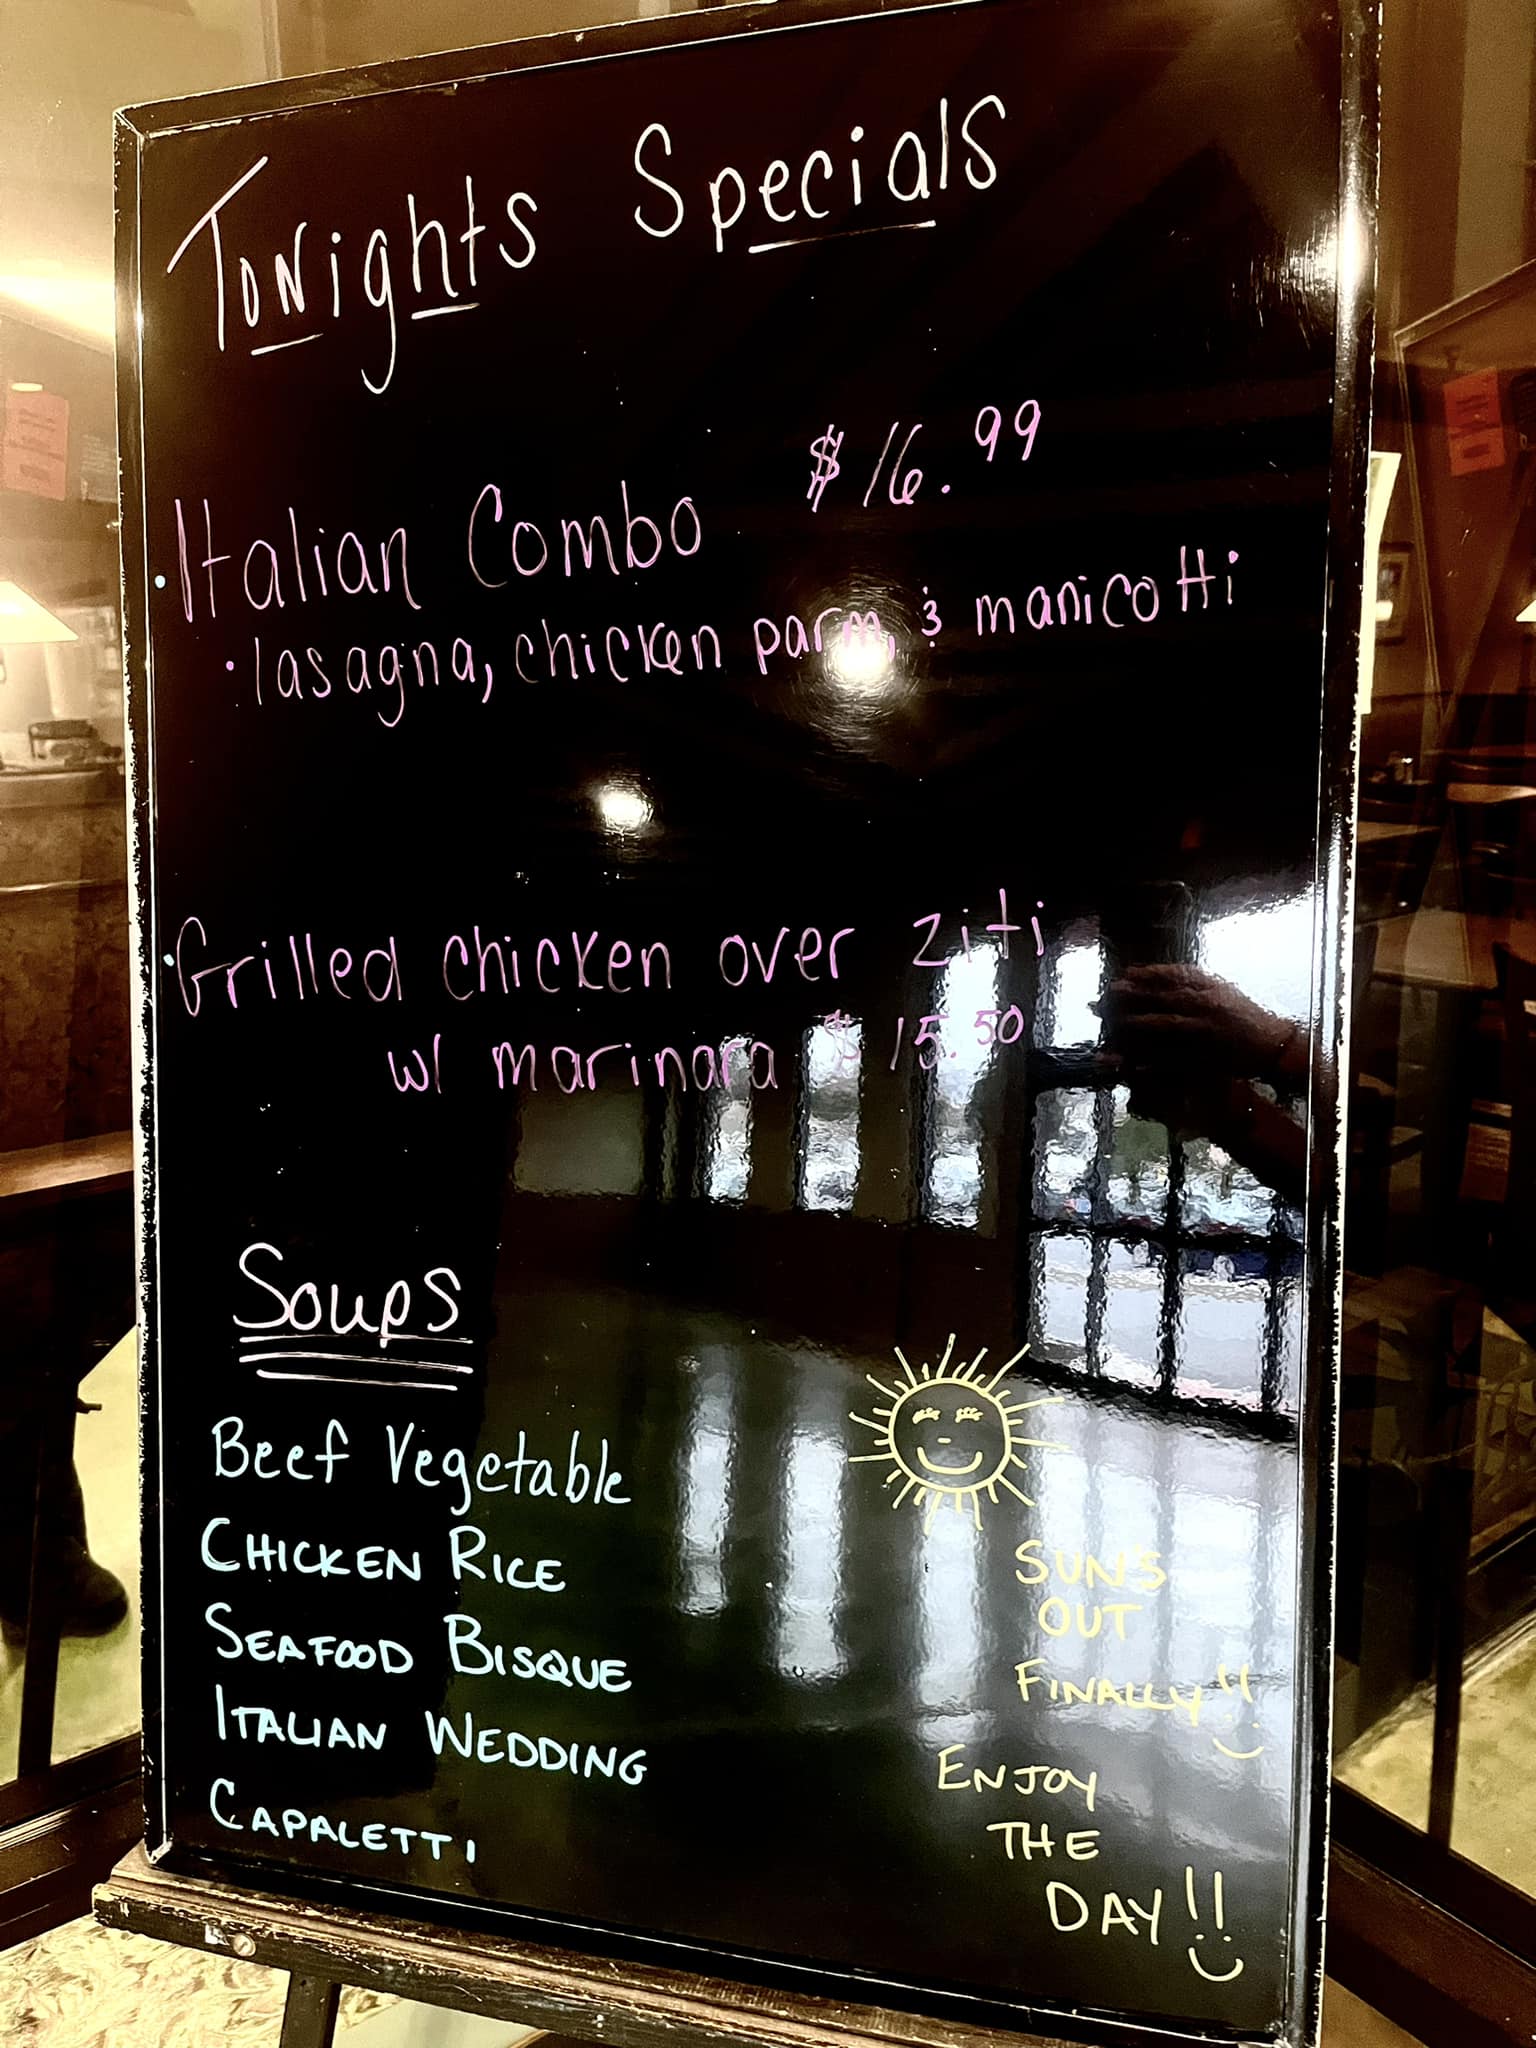 Tonights Specials
• Italian Combo $16.99
• lasagna, chicken parm, & manicotti
• Grilled chicken over ziti
w/ marinara $15.50
Soups
Beef Vegetable
CHICKEN RICE
SEAFOOD BISQUE
ITALIAN WEDDING
CAPALETTI
SUN'S
OUT
FINALLY!!
ENJOY
THE
DAY!!